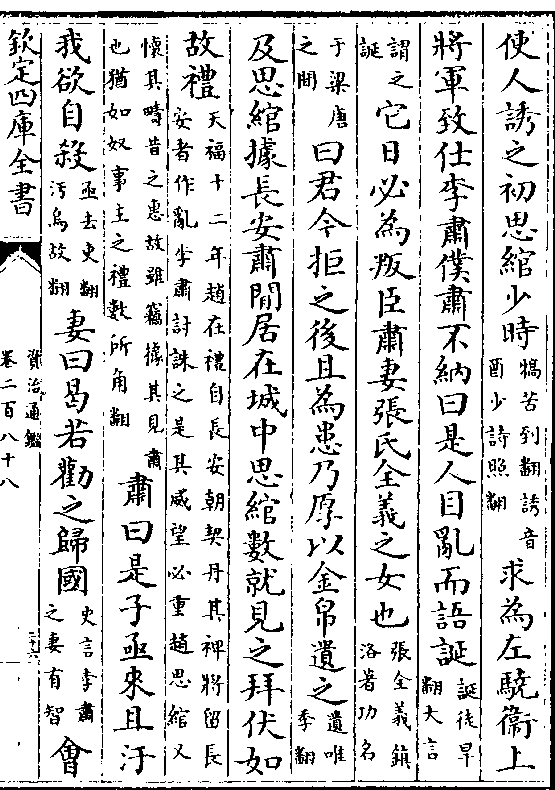 使人誘之初思綰少時犒苦到翻誘音酉少詩照翻求為左驍衛上
將軍致仕李肅僕肅不納曰是人目亂而語誕誕徒旱翻大言
謂之誕它日必為叛臣肅妻張氏全義之女也張全義鎮洛著功名
于梁唐之間曰君今拒之後且為患乃厚以金帛遺之遺唯季翻
及思綰據長安肅閒居在城中思綰數就見之拜伏如
故禮天福十二年趙在禮自長安朝契丹其裨將留長安者作亂李肅討誅之是其威望必重趙思綰又
懷其疇昔之惠故雖竊據其見肅也猶如奴事主之禮數所角翻肅曰是子亟來且汙
我欲自殺亟去吏翻汙烏故翻妻曰曷若勸之歸國史言李肅之妻有智會
欽定四庫全書
資治通鑑
卷二百八十八